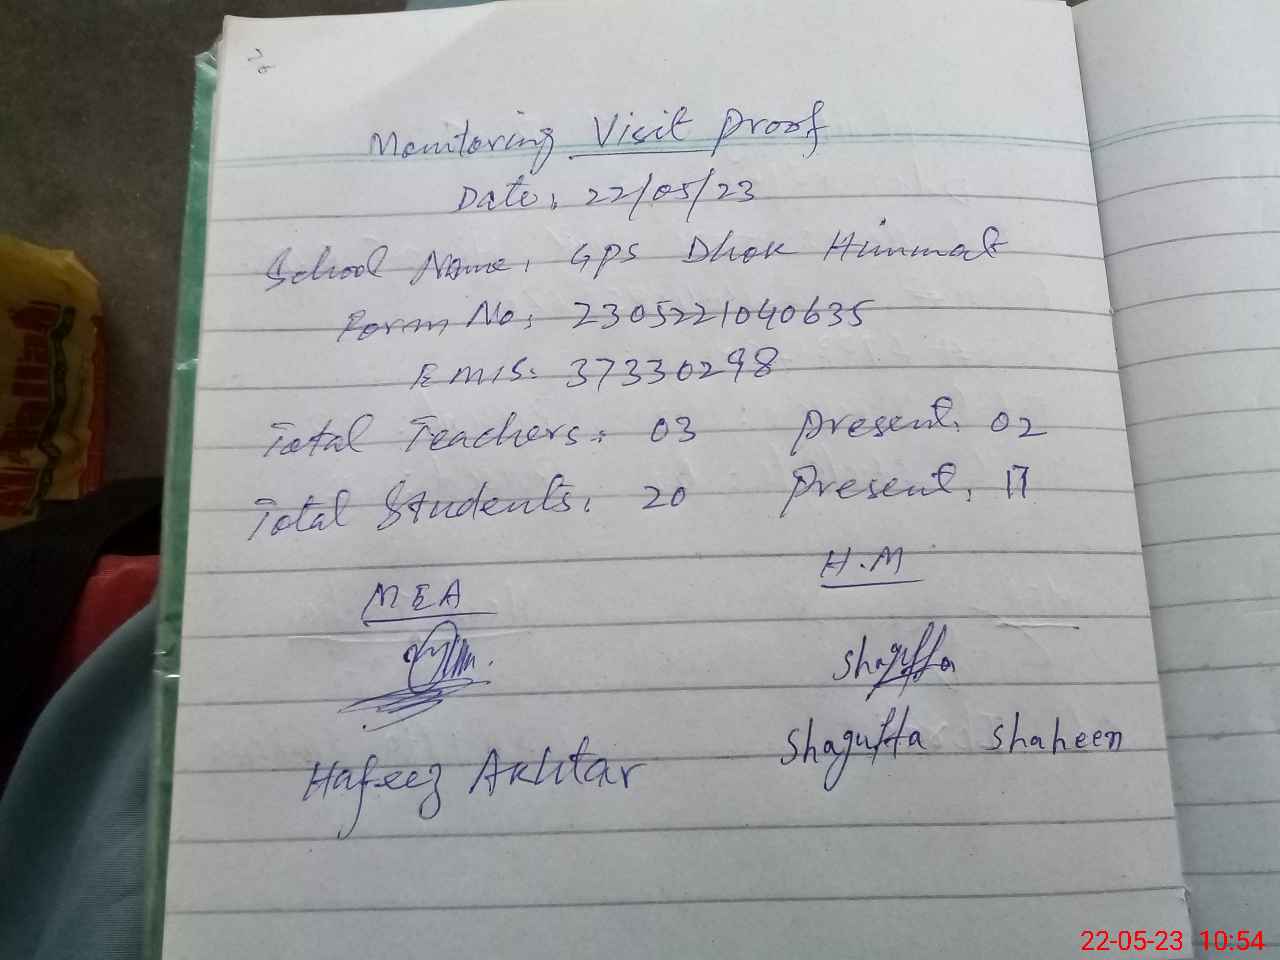 26
Monitoring Visit Proof
Date: 22/05/23
School Name: GPS Dhok Himmat
Form No: 2305221040635
EMIS: 37330298
Total Teachers: 03 Present: 02
Total Students: 20 Present: 17
MEA H.M
Shagufta
Hafeez Akhtar Shagufta Shaheen
22-05-23 10:54